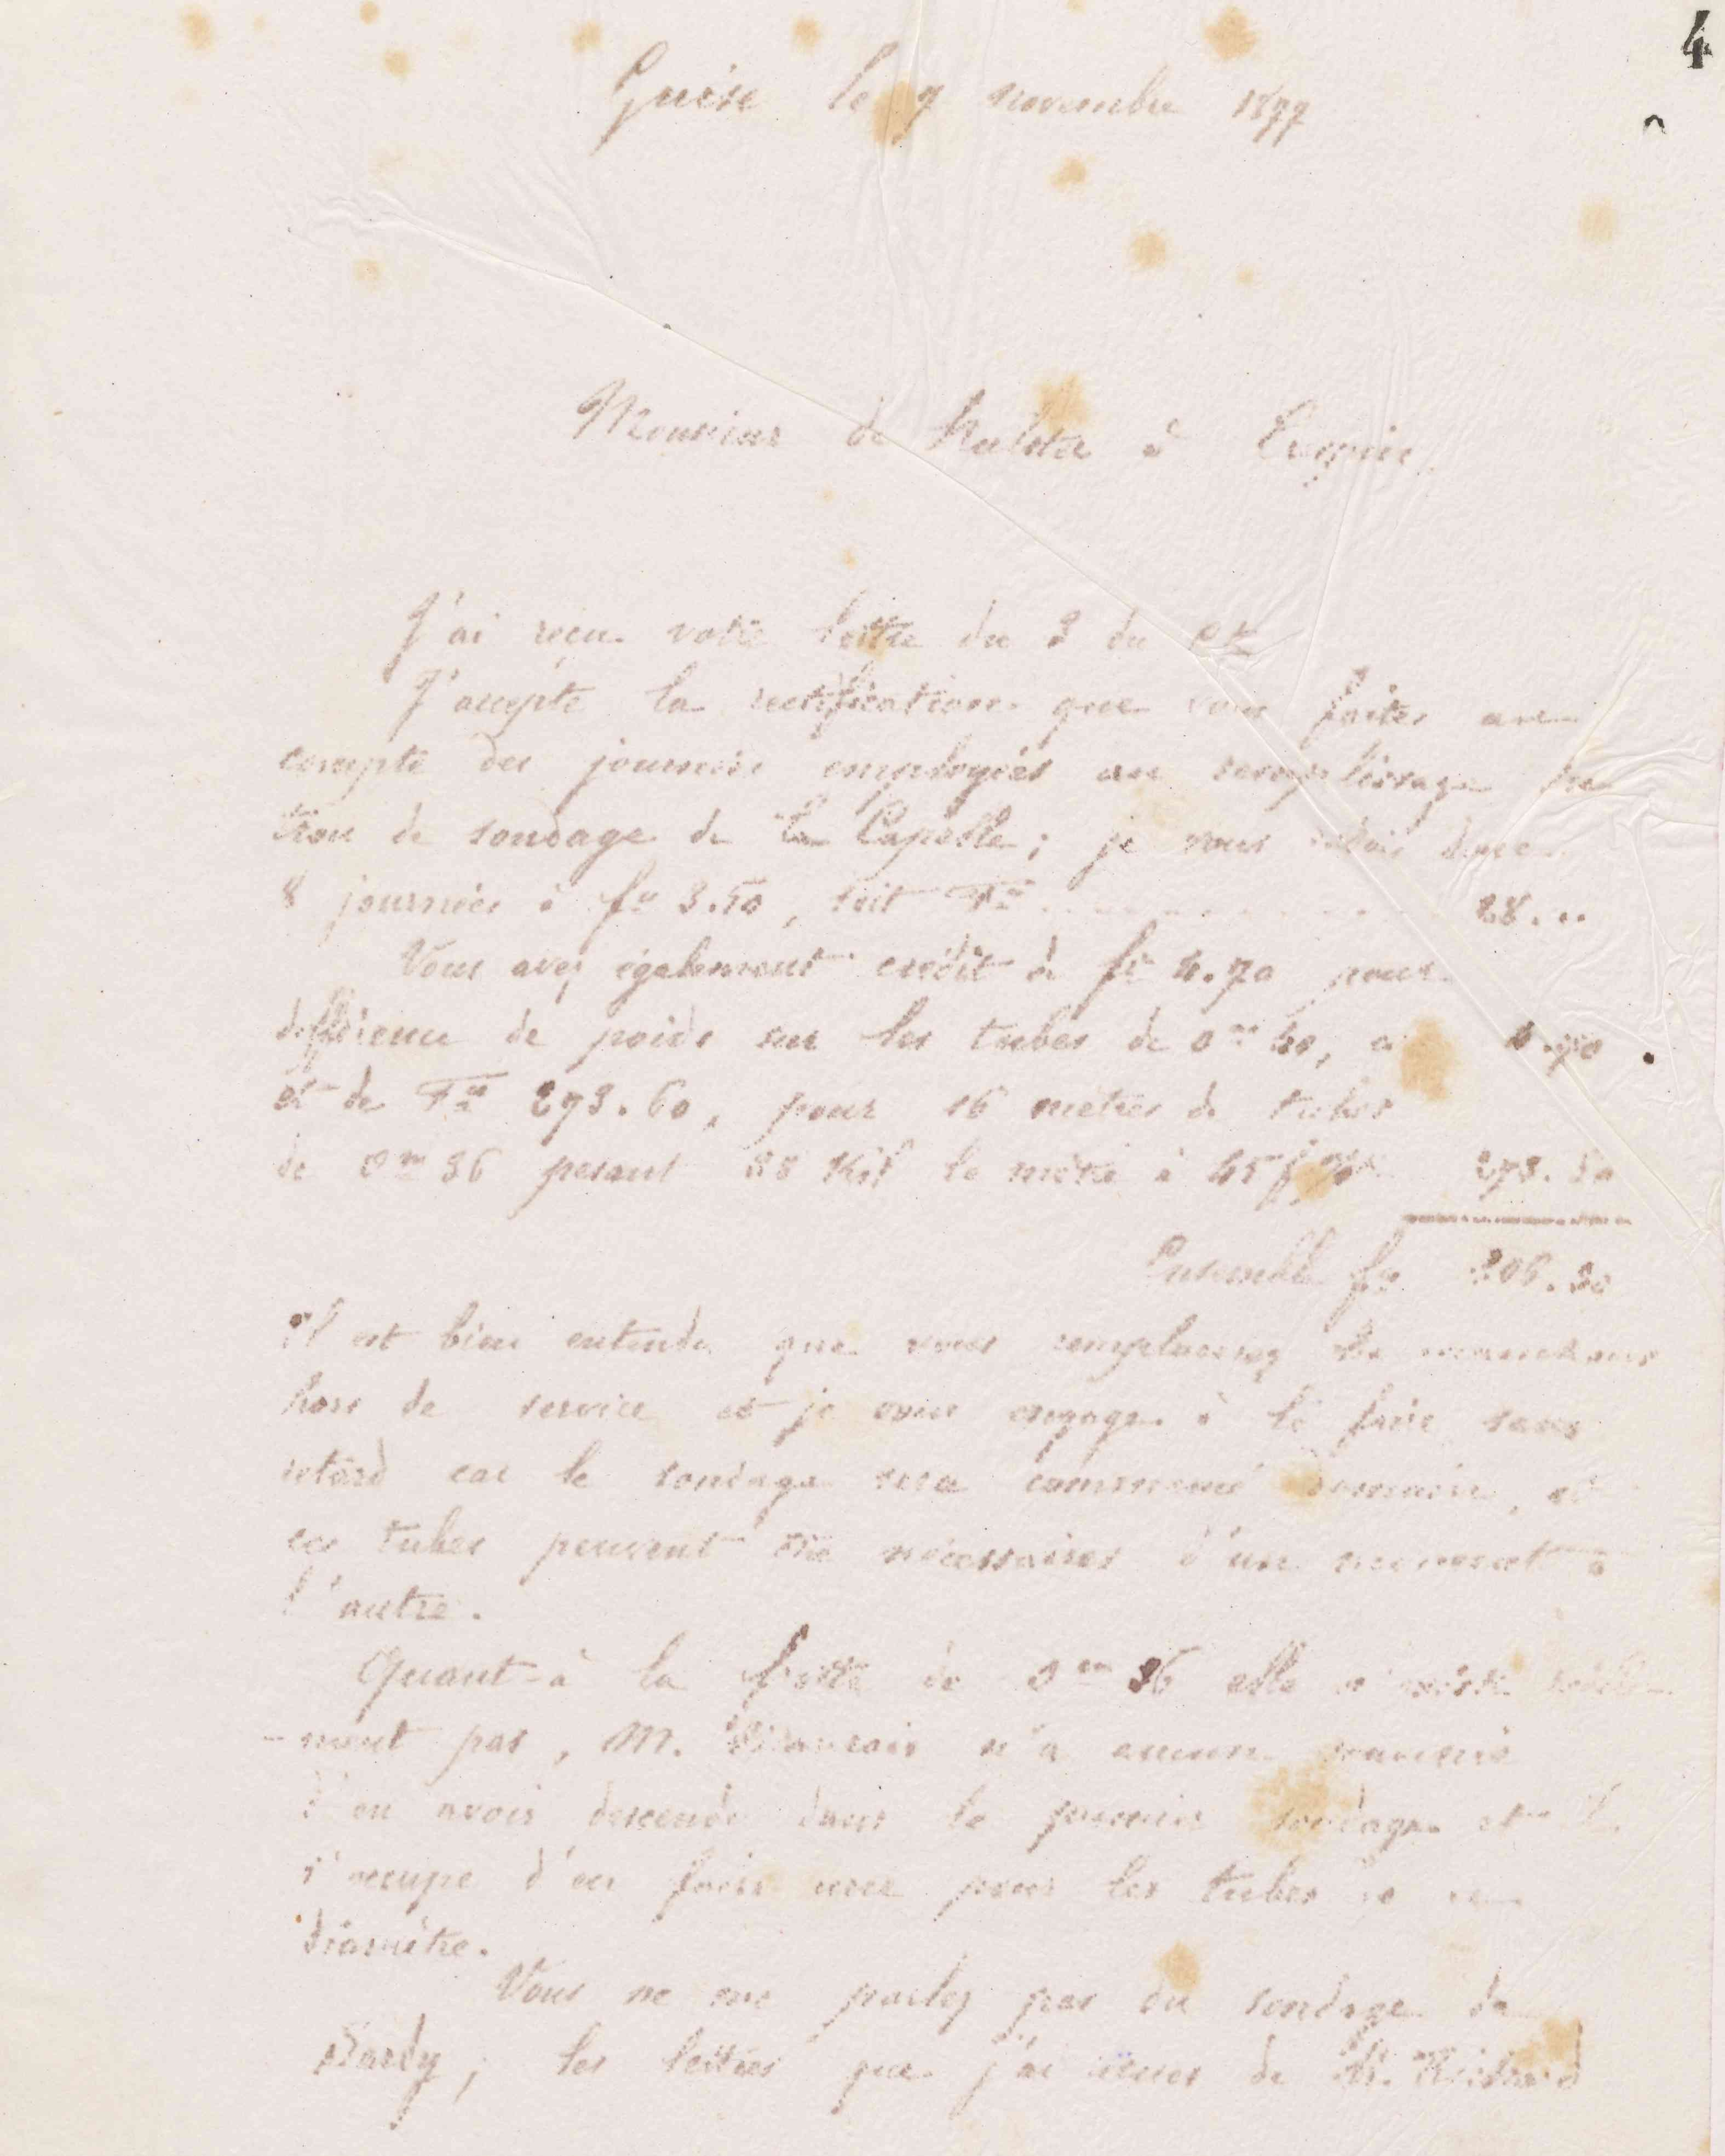 4
Guise le 9 novembre 1877
Monsieur de Hulster à Crespin
J'ai reçu votre lettre du 3 du ct
J'accepte la rectification que vous faites au
compte des journées employées au remplissage du
trou de sondage de La Capelle ; je vous redois donc
8 journées à frs 3.50, soit Frs 28. ..
Vous avez également crédit de frs 4.70 pour
différence de poids sur les tubes de 0m 40, ci 4.70
et de Frs 273.60, pour 16 mètres de tubes
de 0m 36 pesant 38 Kil le mètre à 45 f % 273.60
Ensemble frs 306.30
Il est bien entendu que vous remplacerez les manchons
hors de service et je vous engage à le faire sans
retard car le sondage sera commencé demain, et
ces tubes peuvent être nécessaires d'un moment à
l'autre.
Quant à la frette de 0m 36 elle n'existe réelle-
-ment pas, M. n'a aucun souvenir
d'en avoir descendu dans le premier sondage et il
s'occupe d'en faire une pour les tubes de ce
diamètre.
Vous ne me parlez pas du sondage de
Sardy ; les lettres que j'ai reçues de M. Richard